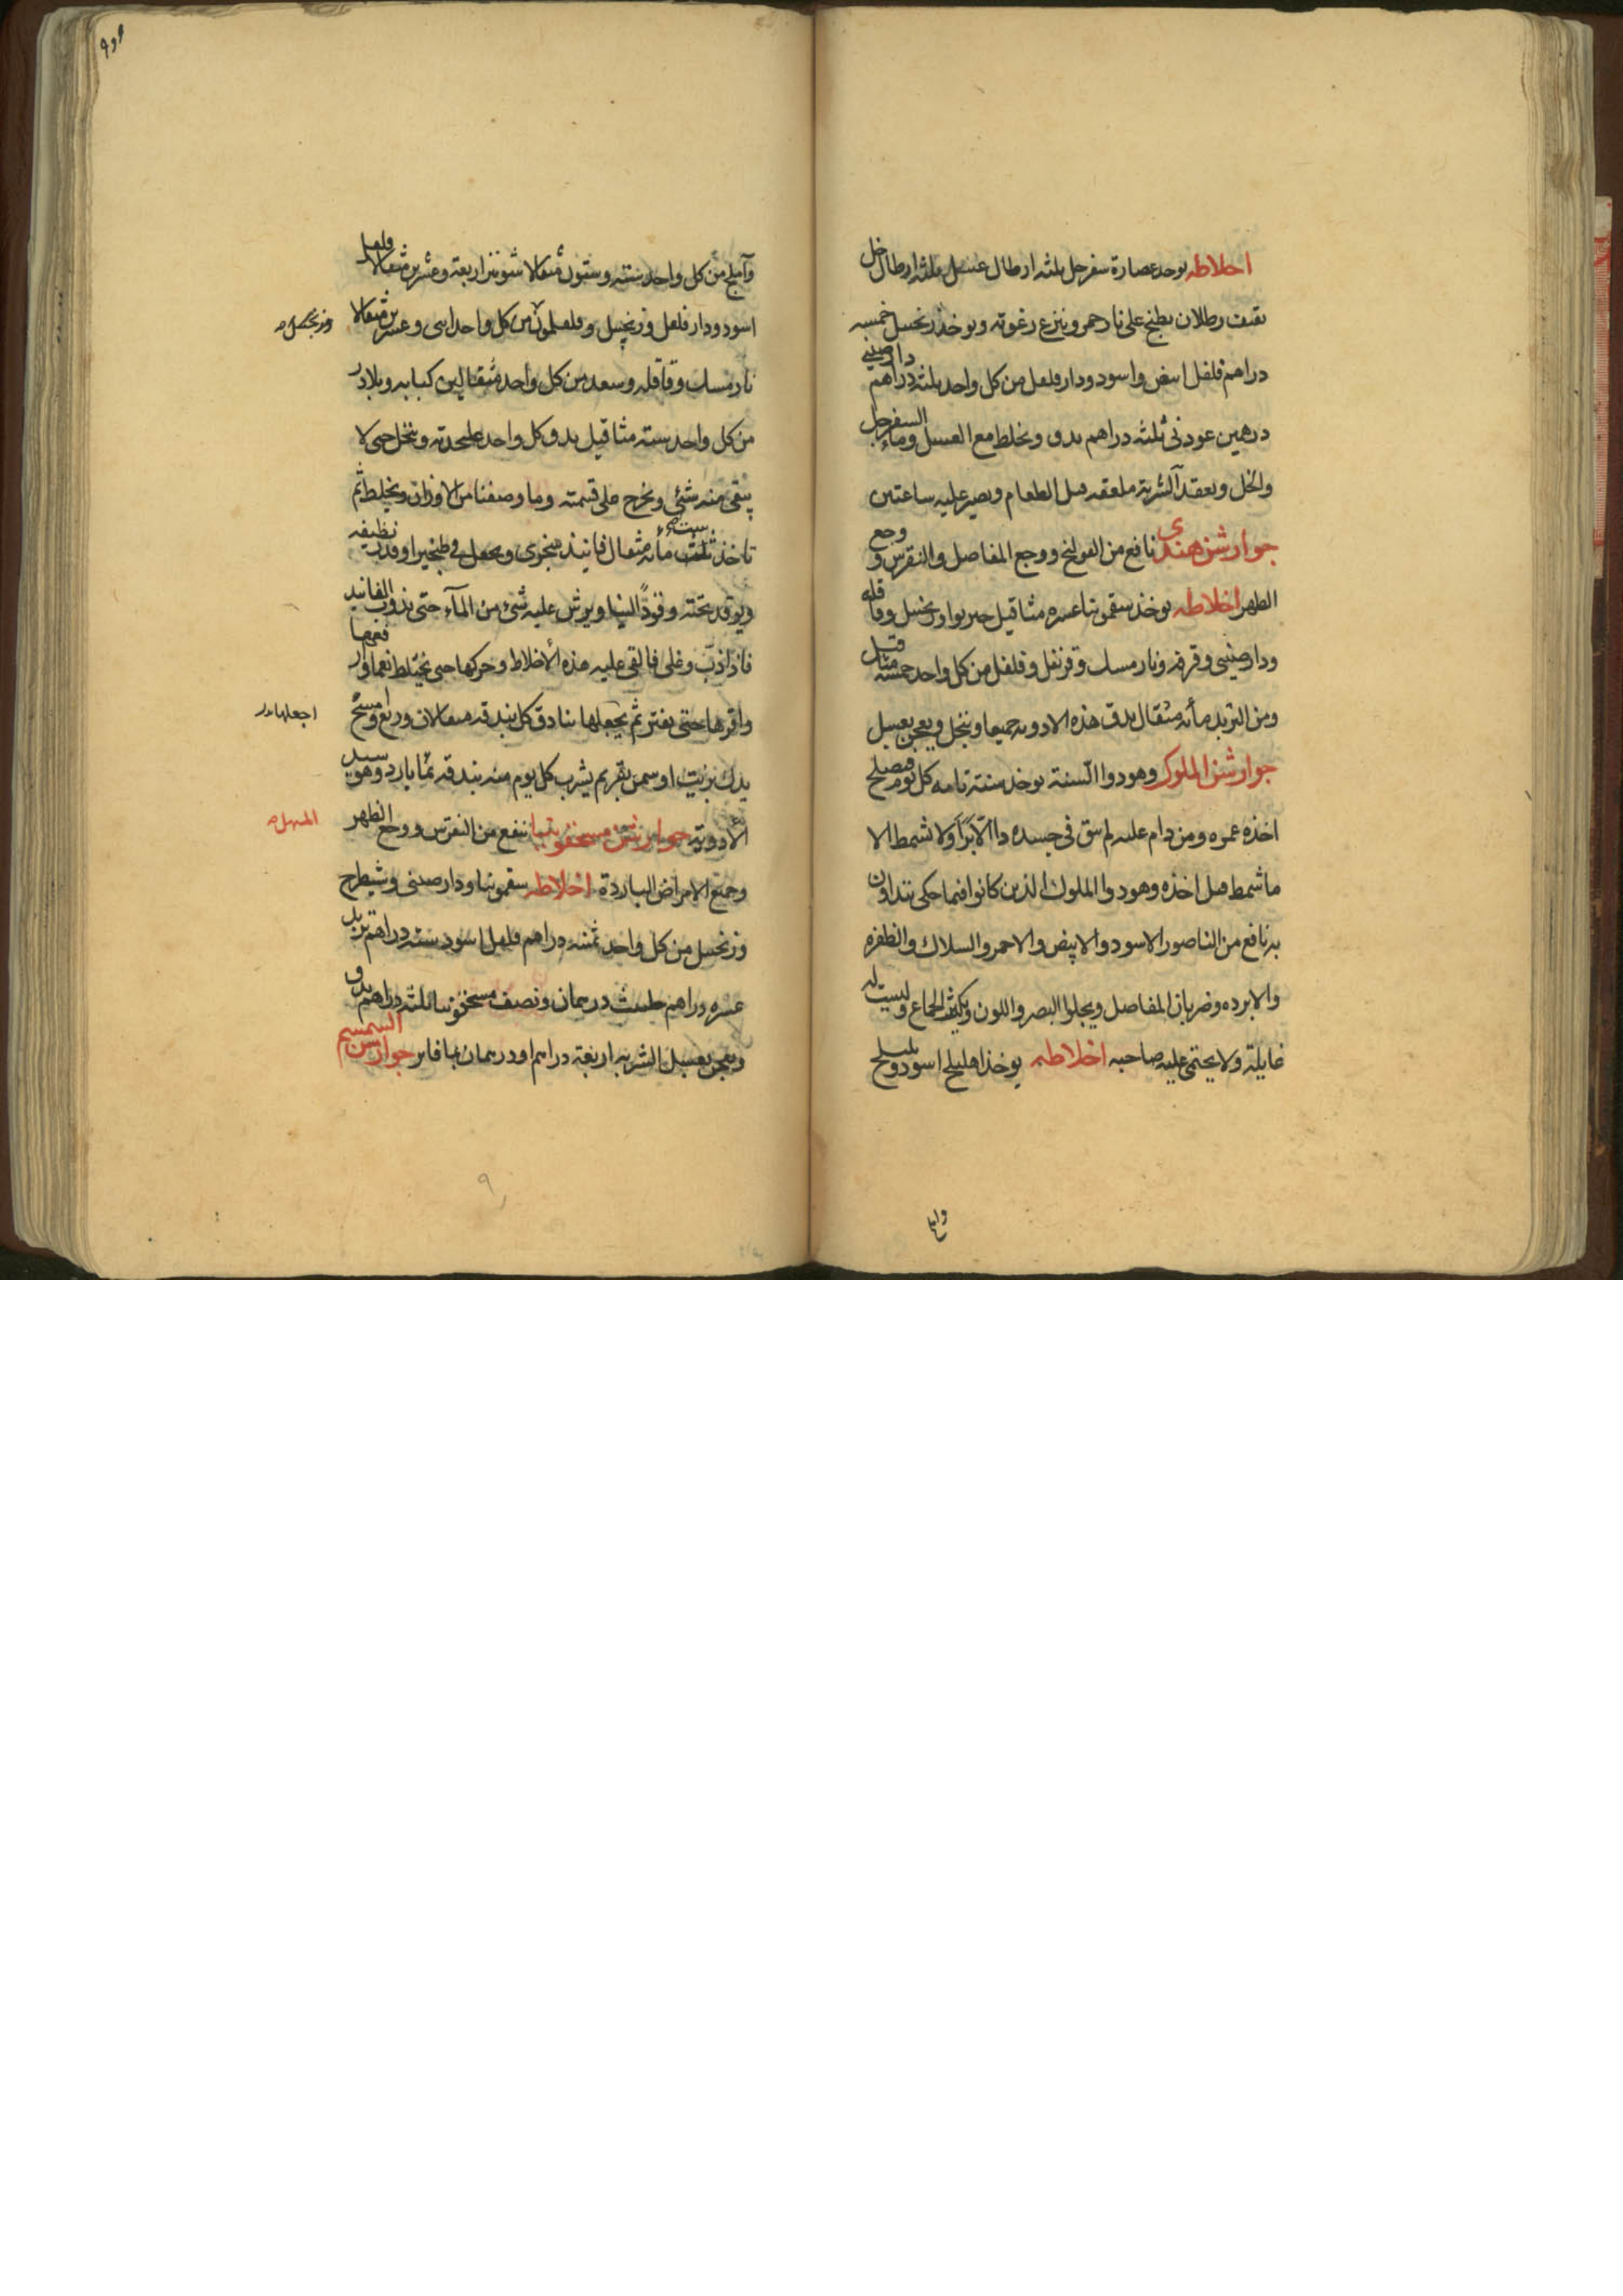 احلاطه يوخذ عصارة سفرجل ثلثه ارطال عسل ثلثه ارطال خل
ثقيف رطلان يطبخ على نار جمر وينزع رغوته ويوخذ زنجبيل خمسه
دراهم فلفل ابيض واسود ودار فلفل من كل واحد ثلثه دراهم دارصيني
درهمين عود نى ثلثه دراهم يدق ويخلط مع العسل وماء السفرجل
والخل ويعقد الشربة ملعقه قبل الطعام ويصبر عليه ساعتين
جوارشن هندى نافع من القولنج ووجع المفاصل والنقرس و وجع
الظهر اخلاطه يوخذ سقمونيا عشره مثاقيل خيربوا وزنجبيل وقاقله
ودارصيني وقرفه ونارمسك وقرنفل وفلفل من كل واحد خمسه مثاقيل
ومن التربد مأنه مثقال يدق هذه الادويه جميعا وينخل ويعجن بعسل
جوارشن الملوك وهو دوا السنة يوخذ سنة تامه كل يوم فيصلح
اخذه عمره ومن دام عليه لم يبق في جسده دا الا براَ ولا شمط الا
ما شمط قبل اخذه وهو دوا الملوك الذين كانوا فيما حكى يتداوون
به نافع من الناصور الاسود والابيض والاحمر والسلاك والظفره
والابرده وضربان المفاصل ويجلوا البصر واللون ويكثر الجماع وليست له
غايلة ولا يحتمى عليه صاحبه اخلاطه يوخذ اهليلج اسود وبليلج
وآملج من كل واحد سته وستون مثقالا شونيز اربعة وعشرين مثقالا فلفل
اسود ودار فلفل وزنجبيل وفلفلمون من كل واحد اثنى وعشرين مثقالا
وزنجبيل
نارمسك وقاقله وسعد من كل واحد مثقالين كبابه وبلادر
من كل واحد سته مثاقيل يدق كل واحد على حدته وينخل حتى لا
يبقى منه شئ ويخرج على قيمته وما وصفنا من الاوزان ويخلط ثم
تاخذ ستمأنه مثقال فانيذ سجزى ويجعل في طنجير او قدر نظيفه
ويوقد تحته وقودًا لينا ويرش عليه شئ من المآء حتى يذوب الفانيد
فاذا ذاب وغلى فالقى عليه هذه الأخلاط وحركها حتى يختلط نعما
واقرها حتى يفتر ثم يجعلها بنادق كل بندقه مثقالان وربع وامسح
اجعلها
يدك بزيت او سمن بقر ثم يشرب كل يوم منه بندقه بما بارد وهو سيد
الأدوية جوارشن مسحقونيا ينفع من النقرس ووجع الظهر
المسهل
وجميع الامراض الباردة اخلاطه سقمونيا ودارصيني وشيطرج
وزنجبيل من كل واحد ثمنيه دراهم فلفل اسود سته دراهم تربد
عشره دراهم حلتيث درهمان ونصف مسحقونيا ثلثه دراهم يدق
ويعجن بعسل الشربه اربعة دراهم او درهمان بما فاتر جوارشن السمسم